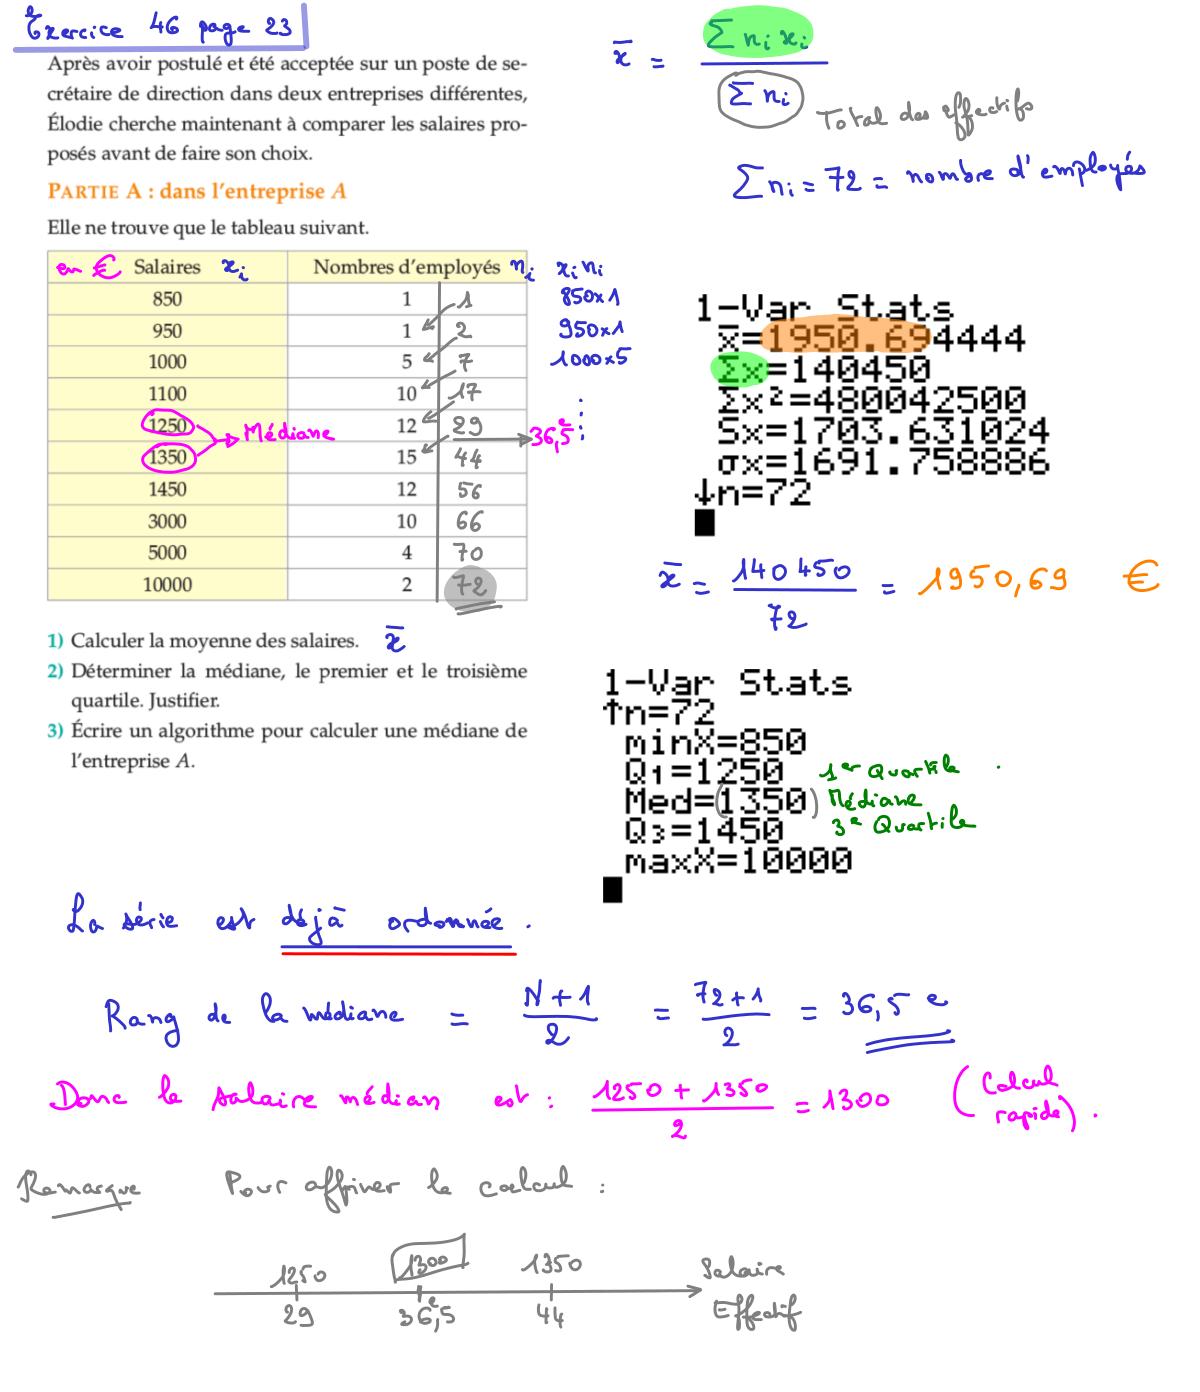 Exercice 46 page 23
Après avoir postulé et été acceptée sur un poste de se-
crétaire de direction dans deux entreprises différentes,
Élodie cherche maintenant à comparer les salaires pro-
posés avant de faire son choix.
PARTIE A : dans l'entreprise A
Elle ne trouve que le tableau suivant.
en € Salaires xi Nombres d'employés ni xi ni
850 1 1 850x1
950 1 2 950x1
1000 5 7 1000x5
1100 10 17
1250 12 29
Médiane 36,5e
1350 15 44
1450 12 56
3000 10 66
5000 4 70
10000 2 72
1) Calculer la moyenne des salaires. x̄
2) Déterminer la médiane, le premier et le troisième
quartile. Justifier.
3) Écrire un algorithme pour calculer une médiane de
l'entreprise A.
x̄ = Σ ni xi / Σ ni
Total des effectifs
Σ ni = 72 = nombre d'employés
1-Var Stats
x̄=1950.694444
Σx=140450
Σx²=480042500
Sx=1703.631024
σx=1691.758886
↓n=72
x̄ = 140 450 / 72 = 1950,69 €
1-Var Stats
↑n=72
minX=850
Q1=1250 1er Quartile
Med=(1350) Médiane
Q3=1450 3e Quartile
maxX=10000
La série est déjà ordonnée.
Rang de la médiane = N+1 / 2 = 72+1 / 2 = 36,5 e
Donc le salaire médian est : 1250 + 1350 / 2 = 1300 (Calcul rapide).
Remarque Pour affiner le calcul :
1250 1300 1350 Salaire
29 36,5e 44 Effectif